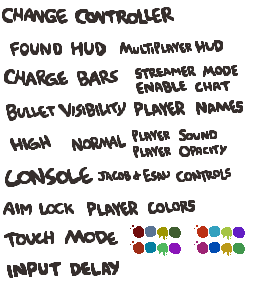 CHANGE CONTROLLER
FOUND HUD MULTIPLAYER HUD
CHARGE BARS STREAMER MODE
ENABLE CHAT
BULLET VISIBILITY PLAYER NAMES
HIGH NORMAL PLAYER SOUND
PLAYER OPACITY
CONSOLE JACOB & ESAU CONTROLS
AIM LOCK PLAYER COLORS
TOUCH MODE
INPUT DELAY